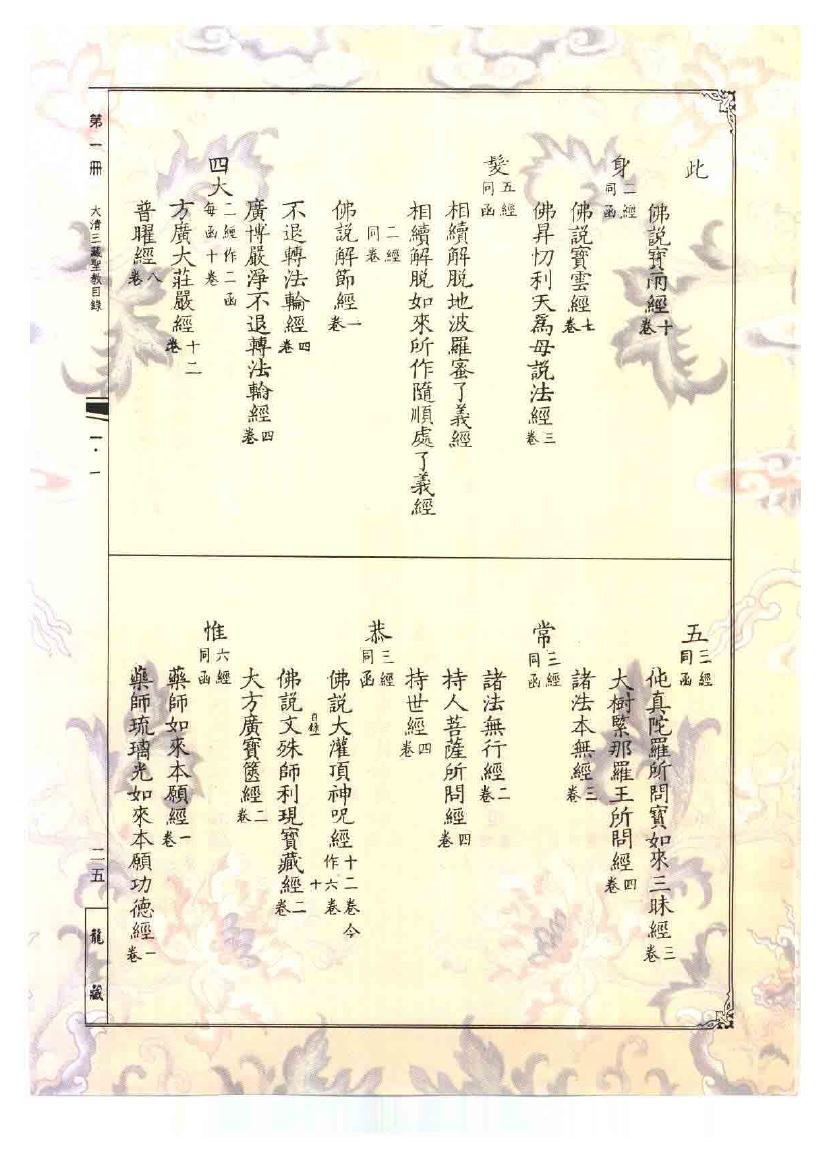 此
佛說寶雨經十卷
身二經同函
佛說寶雲經七卷
佛昇忉利天爲母說法經三卷
髮五經同函
相續解脫地波羅蜜了義經
相續解脫如來所作隨順處了義經
二經同卷
佛說解節經一卷
不退轉法輪經四卷
廣博嚴淨不退轉法輪經四卷
四大二經作二函每函十卷
方廣大莊嚴經十二卷
普曜經八卷
五三經同函
伅真陀羅所問寶如來三昧經三卷
大樹緊那羅王所問經四卷
諸法本無經三卷
常三經同函
諸法無行經二卷
持人菩薩所問經四卷
持世經四卷
恭三經同函
佛說大灌頂神呪經十二卷今作六卷
目錄一 十
佛說文殊師利現寶藏經二卷
大方廣寶篋經二卷
惟六經同函
藥師如來本願經一卷
藥師琉璃光如來本願功德經一卷
第一冊 大清三藏聖教目錄
一·一
二五
龍藏